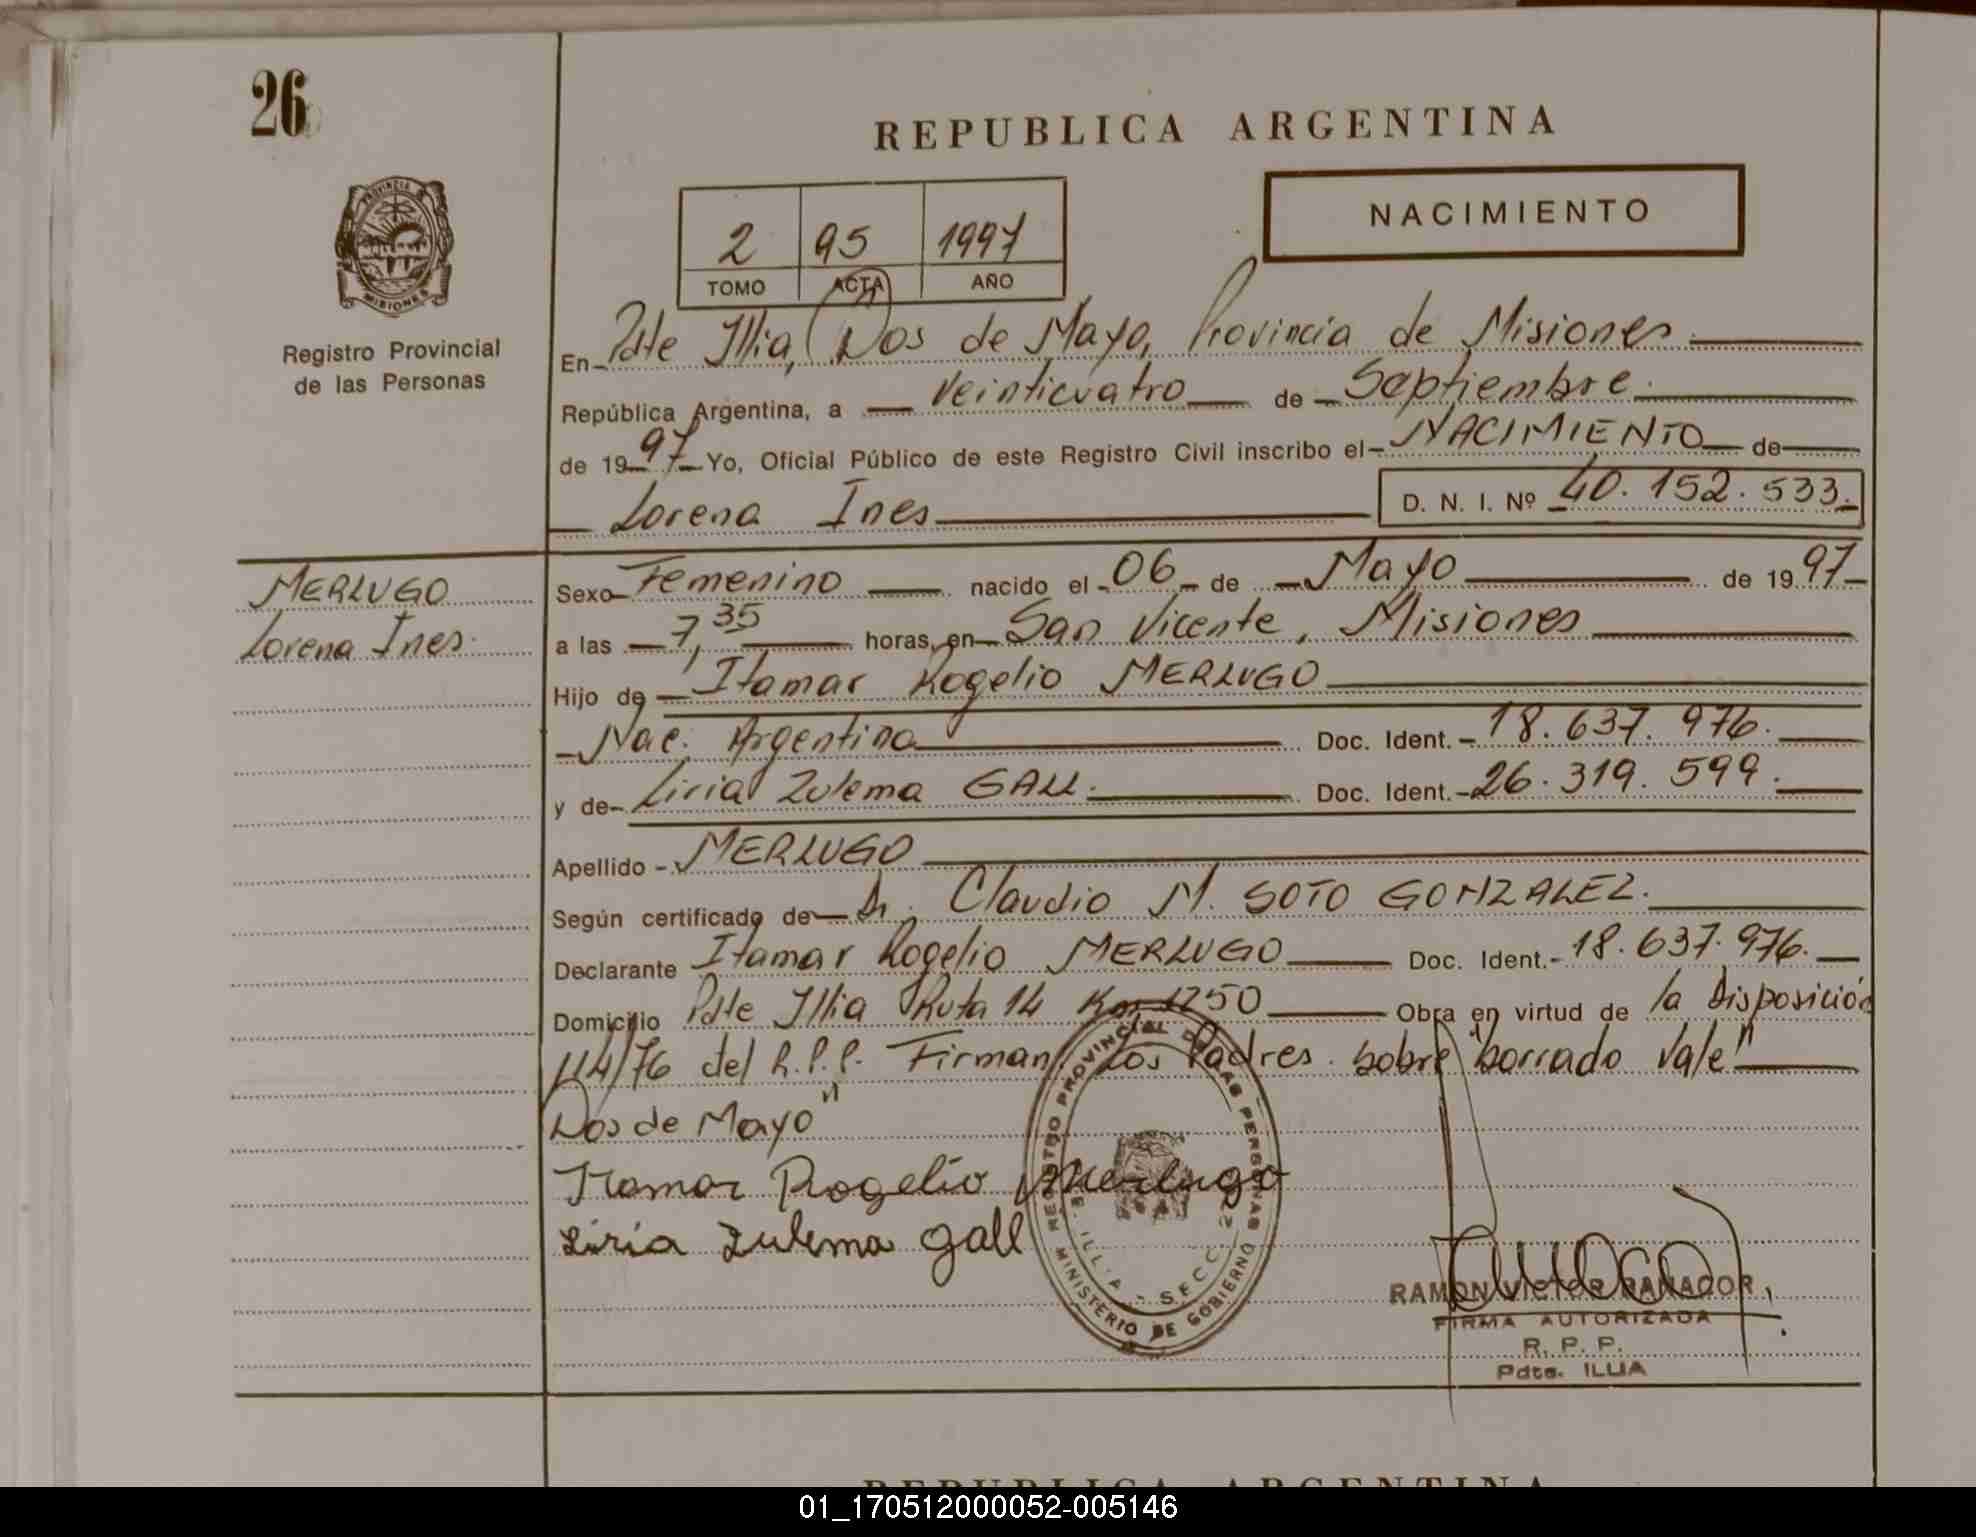 26
REPUBLICA ARGENTINA
PROVINCIA MISIONES
NACIMIENTO
2 95 1997
TOMO ACTA AÑO
Registro Provincial
de las Personas
En Pdte Illia, Dos de Mayo, Provincia de Misiones
República Argentina, a veinticuatro de Septiembre.
de 1997 Yo, Oficial Público de este Registro Civil inscribo el NACIMIENTO de
Lorena Ines D. N. I. Nº 40.152.533.
MERLUGO
Lorena Ines.
Sexo Femenino nacido el 06 de Mayo de 1997
a las 7,35 horas, en San Vicente, Misiones
Hijo de Itamar Rogelio MERLUGO
Nac. Argentina Doc. Ident. 18.637.976.
y de Liria Zulema GALL. Doc. Ident. 26.319.599.
Apellido MERLUGO
Según certificado de Dr. Claudio M. SOTO GONZALEZ.
Declarante Itamar Rogelio MERLUGO Doc. Ident. 18.637.976.
Domicilio Pdte Illia Ruta 14 Km 1250 Obra en virtud de la Disposición
114/76 del R.P.P. Firman Los Padres. Sobre "borrado Vale"
Dos de Mayo"
Itamar Rogelio Merlugo
Liria Zulema Gall
REGISTRO PROVINCIAL DE LAS PERSONAS
MINISTERIO DE GOBIERNO
ILLIA SECC.
RAMON VICTOR
FIRMA AUTORIZADA
R. P. P.
Pdte. ILLIA
REPUBLICA ARGENTINA
01_170512000052-005146